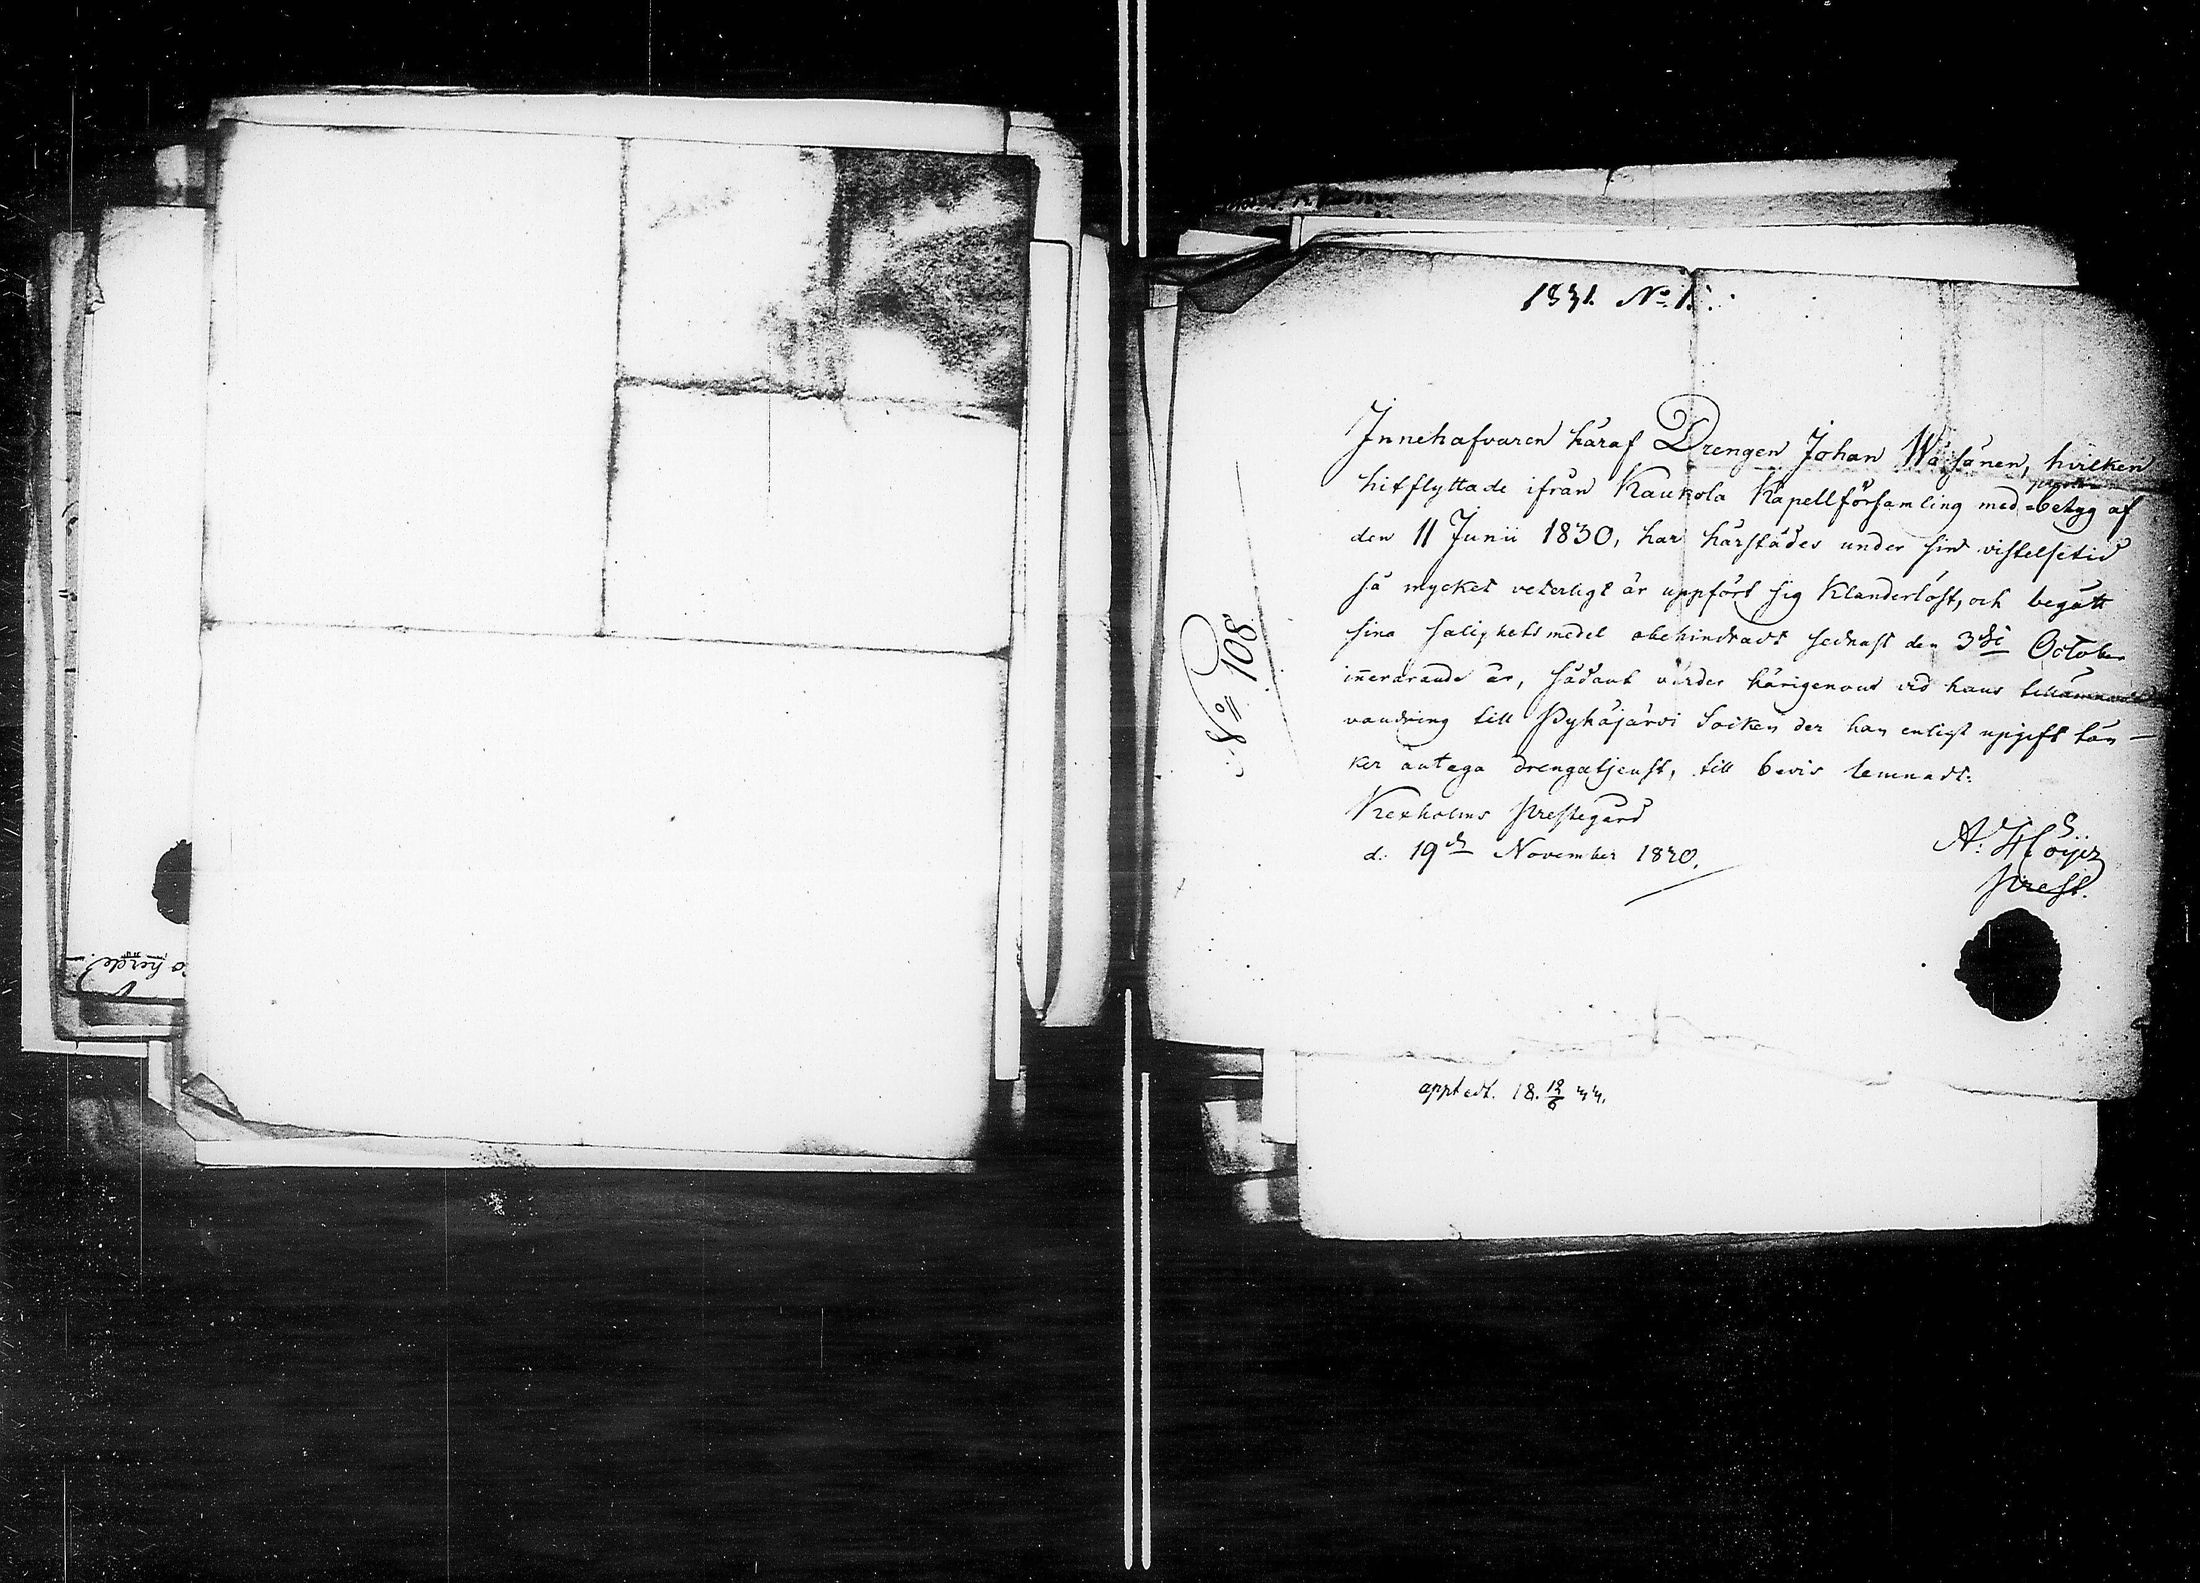 1831. No 1.
Innehafvaren häraf Drengen Johan Wäisänen, hvilken
hitflyttade ifrån Kaukola Kapellförsamling med betyg af
den 11 Junii 1830, har härstädes under sin vistelsetid
så mycket veterligt är uppfört sig Klanderlöst, och begått
sina salighetsmedel obehindradt sednast den 3die October
innevarande år, sådant varder härigenom vid hans
vandring till Pyhäjärvi Socken der han enligt uppgift tän-
ker antaga drengatjenst, till bevis lemnadt.
Kexholms Prestegård
d. 19de November 1830.
A.
Prest.
No 108
18. 12/6 44.